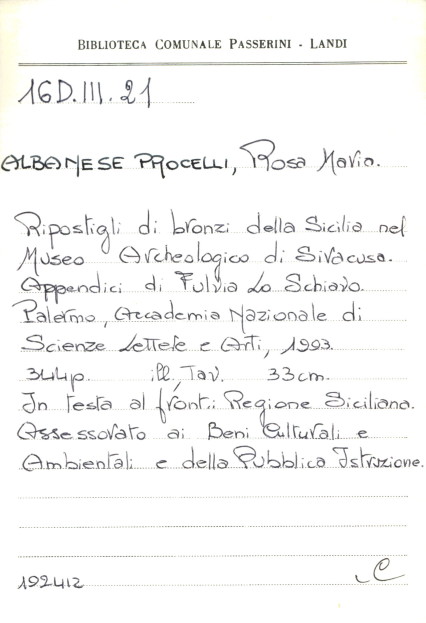 BIBLIOTECA COMUNALE PASSERINI - LANDI
16D.III.21
ALBANESE PROCELLI, Rosa Maria.
Ripostigli di bronzi della Sicilia nel
Museo Archeologico di Siracusa.
Appendici di Fulvia Lo Schiavo.
Palermo, Accademia Nazionale di
Scienze Lettere e Arti, 1993.
344p. ill., Tav. 33cm.
In testa al front.: Regione Siciliana.
Assessorato ai Beni Culturali e
Ambientali e della Pubblica Istruzione.
192412 C